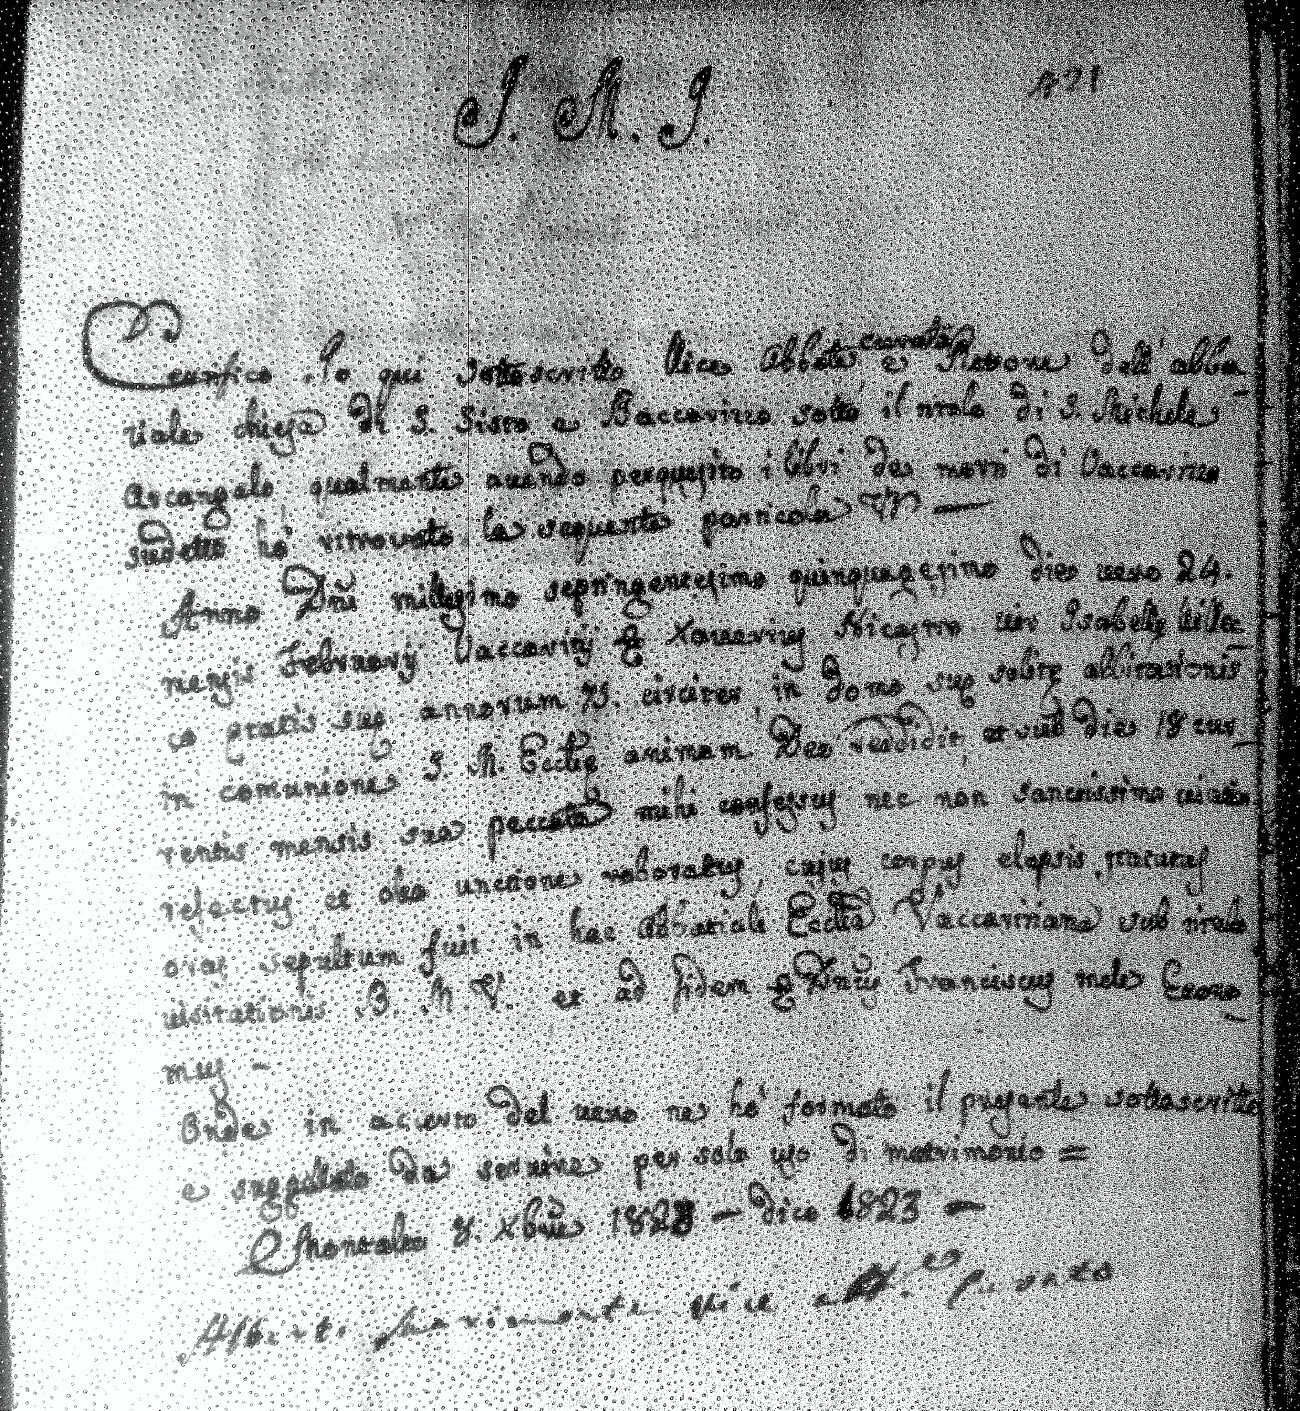 J. M. J.
421
Certifico Io qui sottoscritto Vice Abbate curato e Rettore dell'abba
ziale chiesa di S. Sisto a Vaccarizzo sotto il titolo di S. Michele
Arcangelo qualmente auendo perquisito i libri de morti di Vaccarizzo
sudetto hò ritrovato la seguente particola
Anno Dñi millesimo septingentesimo quinquagesimo die uero 24.
mensis Februarij Vaccaritij Xauerius uir Isabellę
annorum 75. circiter in domo suę solitę abbitationis
in comunione S. M. Ecclię animam Deo reddidit, et sub die 18 cur
rentis mensis sua peccata mihi confessus nec non sanctissimo uiatico
refectus et oleo unctione roboratus, cujus corpus elapsis
sepultum fuit in hac Abbatiali Ecclia Vaccaritiana sub titulo
uisitationis B. M. V. et ad fidem Dñus Franciscus mele Econo
mus -
Onde in accerto del uero ne hò formato il presente sottoscritto
e suggellato da seruire per solo uso di matrimonio =
Montalto 8. Xbre 1823 - dico 1823 -
Alberto vice